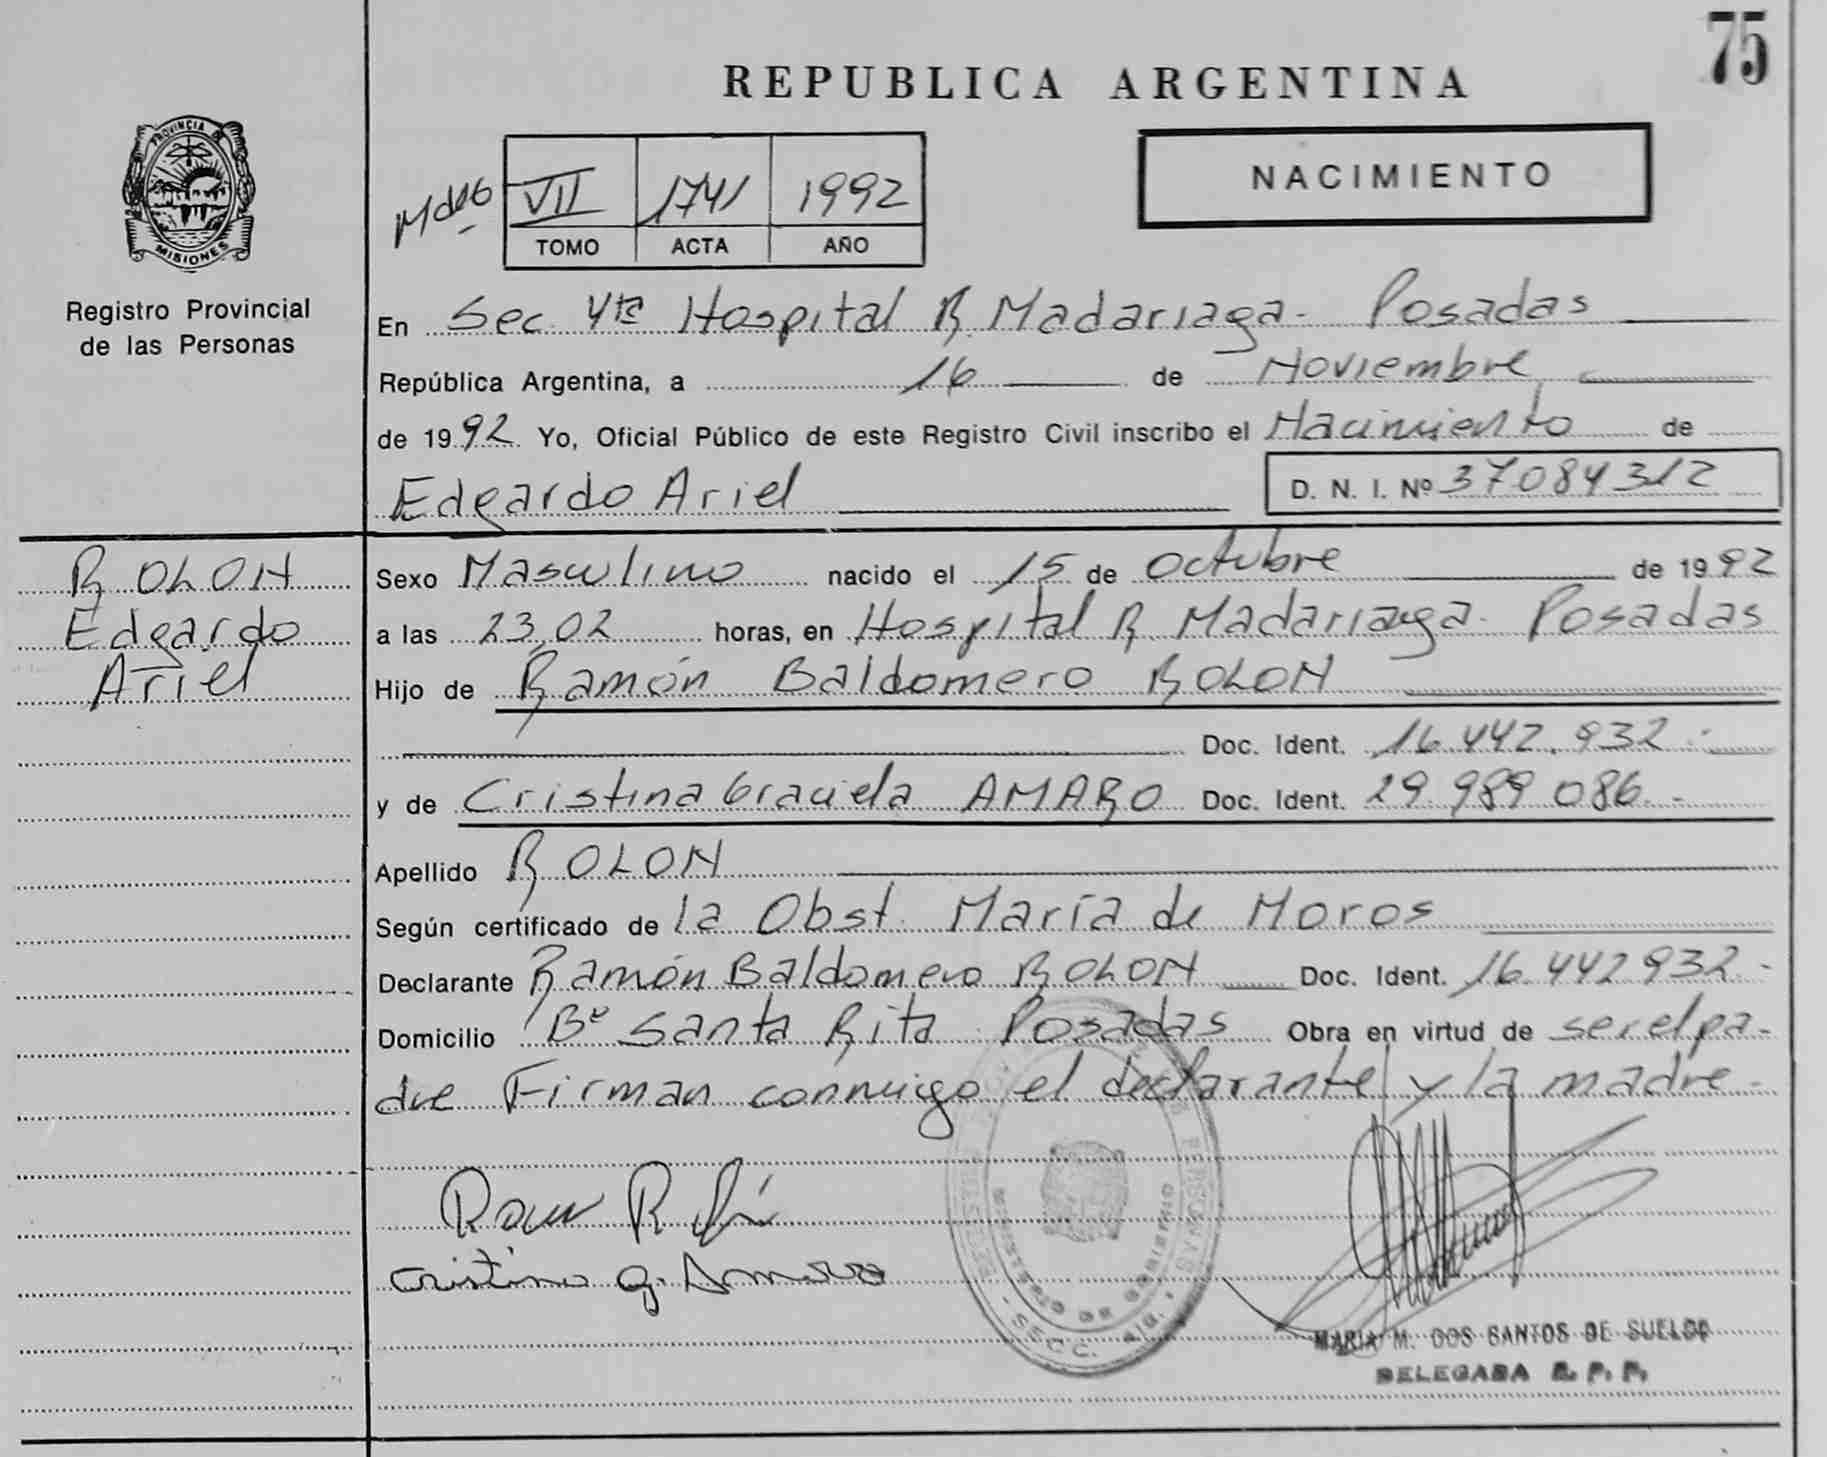 75
REPUBLICA ARGENTINA
NACIMIENTO
PROVINCIA DE
MISIONES
Registro Provincial
de las Personas
VII 1741 1992
TOMO ACTA AÑO
En Sec. 4ta Hospital R. Madariaga - Posadas
República Argentina, a 16 de Noviembre
de 1992 Yo, Oficial Público de este Registro Civil inscribo el Nacimiento de
Edgardo Ariel D. N. I. Nº 37084312
ROLON
Edgardo
Ariel
Sexo Masculino nacido el 15 de Octubre de 1992
a las 23,02 horas, en Hospital R. Madariaga. Posadas
Hijo de Ramón Baldomero ROLON
Doc. Ident. 16.442.932.-
y de Cristina Graciela AMARO Doc. Ident. 29.989.086.-
Apellido ROLON
Según certificado de la Obst. María de Moros
Declarante Ramón Baldomero ROLON Doc. Ident. 16.442932.-
Domicilio Bº Santa Rita Posadas Obra en virtud de ser el pa-
dre Firman conmigo el declarante y la madre.-
Cristina G. Amaro
MINISTERIO DE GOBIERNO
SECC. 4ta.
MARIA M. DOS SANTOS DE SUELDO
DELEGADA R. P. P.